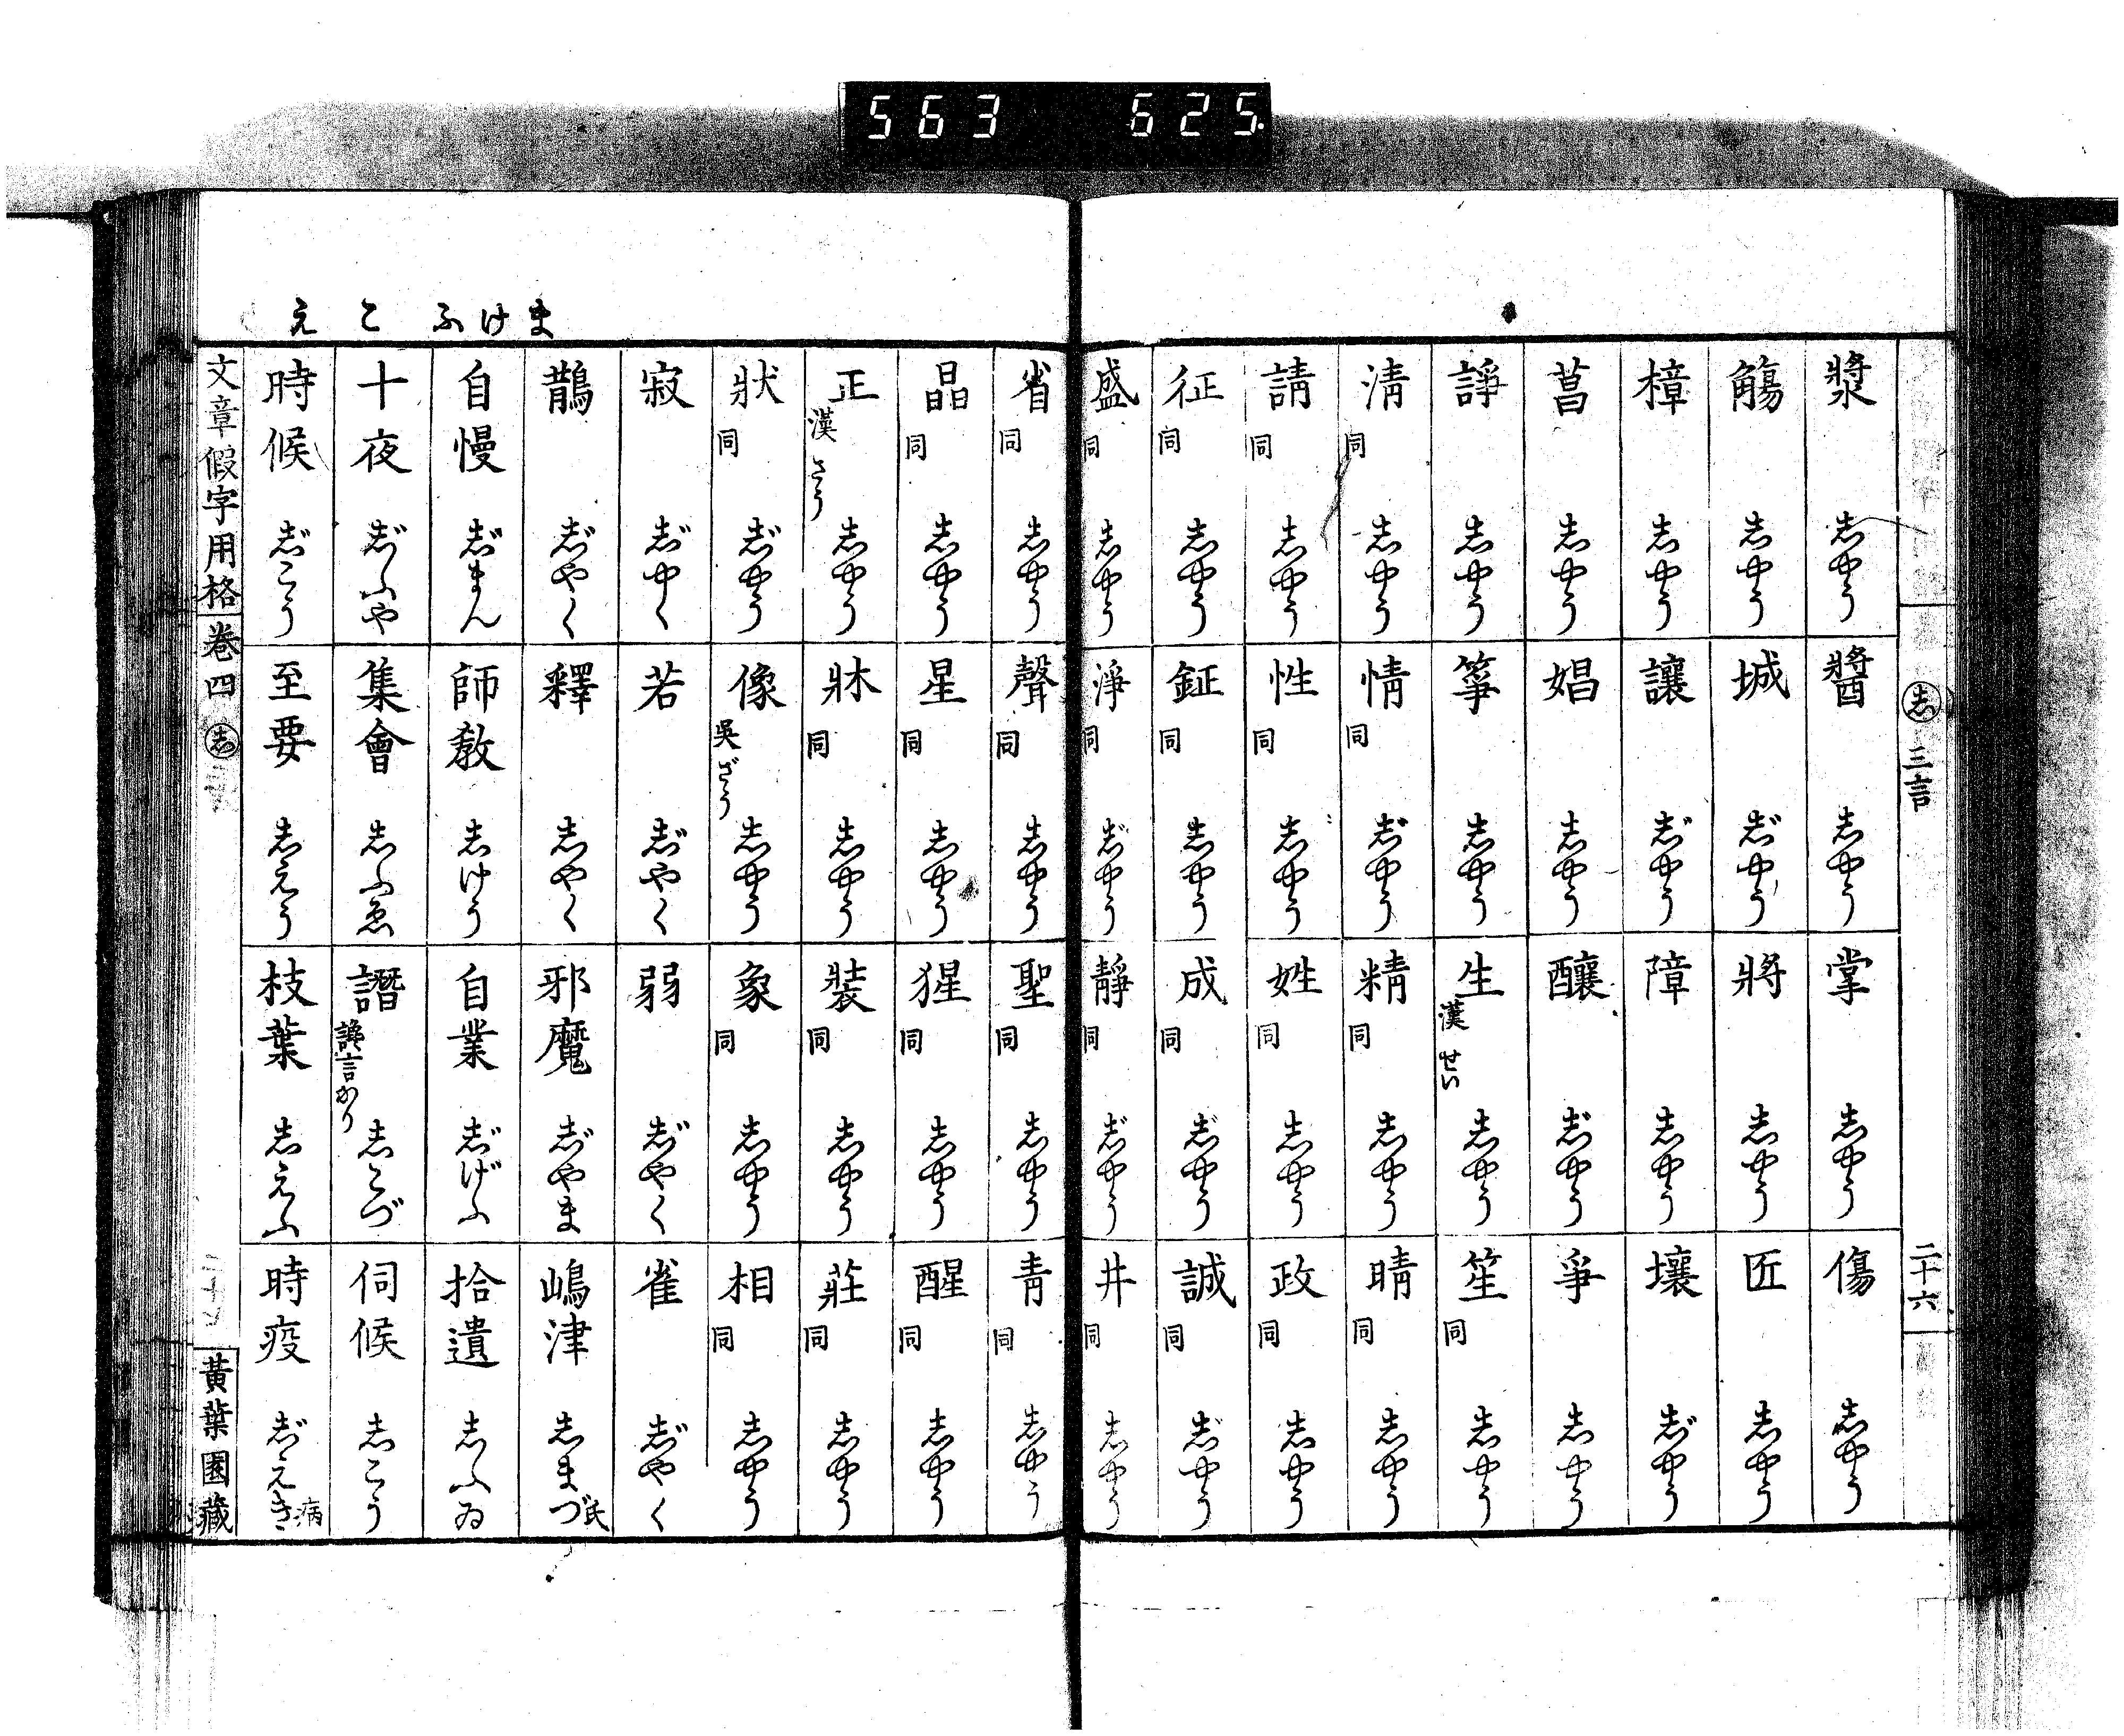 563 625
㋛ 三言 二十六
漿 しやう 醬 しやう 掌 しやう 傷 しやう
觴 しやう 城 じやう 將 しやう 匠 しやう
樟 しやう 讓 じやう 障 しやう 壤 じやう
菖 しやう 娼 しやう 釀 じやう 爭 しやう
諍 しやう 箏 しやう 生 漢せい しやう 笙 同 しやう
清 同 しやう 情 同 じやう 精 同 しやう 晴 同 しやう
請 同 しやう 性 同 しやう 姓 同 しやう 政 同 しやう
征 同 しやう 鉦 同 しやう 成 同 じやう 誠 同 じやう
盛 同 しやう 淨 同 じやう 靜 同 じやう 井 同 しやう
省 同 しやう 聲 同 しやう 聖 同 しやう 青 同 しやう
晶 同 しやう 星 同 しやう 猩 同 しやう 醒 同 しやう
正 漢さう しやう 牀 同 しやう 裝 同 しやう 莊 同 しやう
狀 同 じやう 像 吳ざう しやう 象 同 しやう 相 同 しやう
寂 じやく 若 じやく 弱 じやく 雀 じやく
ま
鵲 じやく 釋 しやく 邪魔 じやま 嶋津 しまづ 氏
け
ふ
自慢 じまん 師敎 しけう 自業 じげふ 拾遺 しふゐ
こ
十夜 じふや 集會 しふゑ 譖 讒言なり しこづ 伺候 しこう
え
時候 じこう 至要 しえう 枝葉 しえふ 時疫 じえき 病
文章假字用格 卷四 ㋛ 黃葉園藏